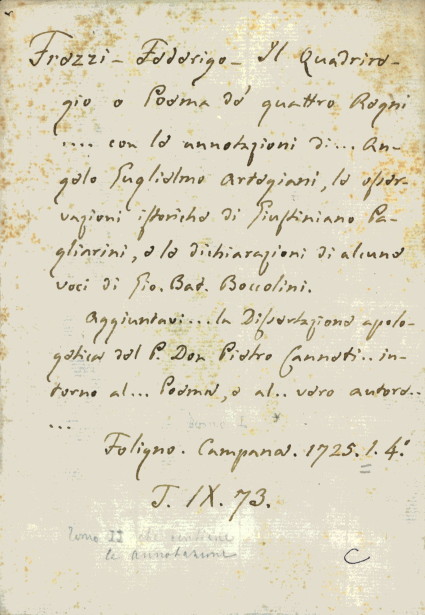 Frezzi - Federigo - Il Quadrire-
gio o Poema de' quattro Regni
.... con le annotazioni di... An-
gelo Guglielmo Artegiani, le osser-
vazioni istoriche di Giustiniano Pa-
gliarini, e le dichiarazioni di alcune
voci di Gio. Bat. Boccolini.
Aggiuntavi... la Dissertazione apolo-
getica del P. Don Pietro Canneti.. in-
torno al... Poema, e al.. vero autore..
...
Foligno. Campana. 1725. 1. 4.º
T. IX. 73.
Tomo II che contiene
le annotazione
C